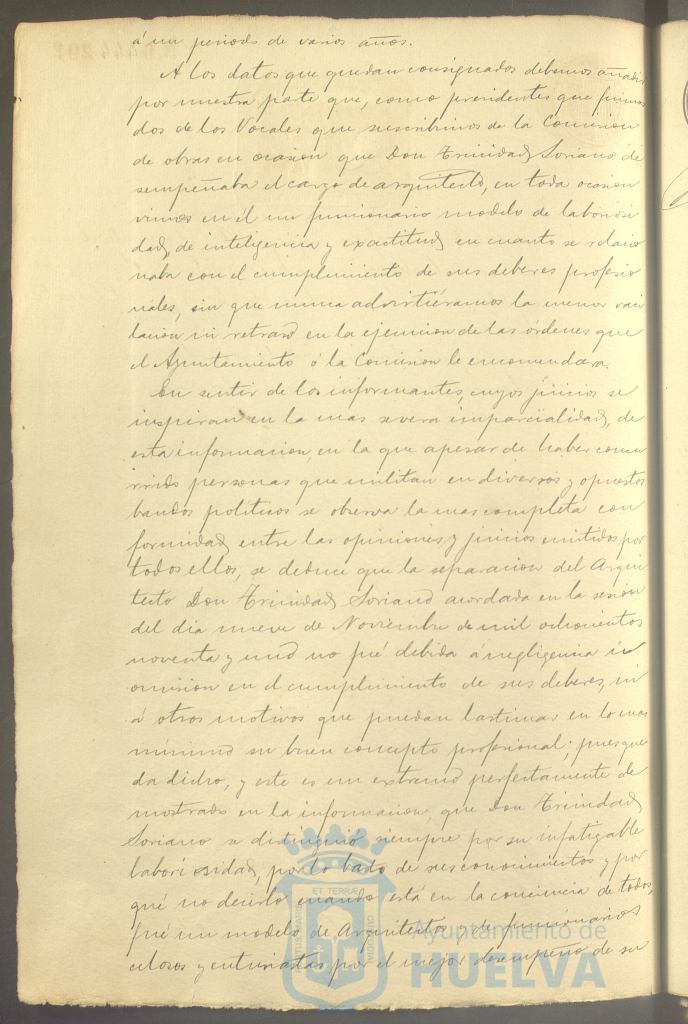 á un periodo de varios años.
A los datos que quedan consignados debemos añadir
por nuestra parte que, como presidentes que fuimos
dos de los Vocales que suscribimos de la Comision
de obras en ocasion que Don Trinidad Soriano de
sempeñaba el cargo de arquitecto, en toda ocasion
vimos en él un funcionario modelo de laboriosi
dad, de inteligencia y exactitud en cuanto se relacio
naba con el cumplimiento de sus deberes profesio
nales, sin que nunca advirtiéramos la menor vaci
lacion ni retraso en la ejecucion de las órdenes que
el Ayuntamiento ó la Comision le encomendara.
En sentir de los informantes, cuyos juicios se
inspiran en la mas severa imparcialidad, de
esta informacion, en la que apesar de haber concu
rrido personas que militan en diversos y opuestos
bandos políticos se observa la mas completa con
formidad entre las opiniones y juicios emitidos por
todos ellos, se deduce que la separacion del Arqui
tecto Don Trinidad Soriano acordada en la sesión
del dia nueve de Noviembre de mil ochocientos
noventa y uno no fué debida á negligencia ú
omision en el cumplimiento de sus deberes, ni
á otros motivos que puedan lastimar en lo mas
mínimo su buen concepto profesional; pues que
da dicho, y este es un extremo perfectamente de
mostrado en la informacion, que Don Trinidad
Soriano se distinguió siempre por su infatigable
laboriosidad, por lo basto de sus conocimientos y por
qué no decirlo cuando está en la conciencia de todos,
fué un modelo de Arquitectos y de funcionarios
celosos y entusiastas por el mejor desempeño de su
Ayuntamiento de
HUELVA